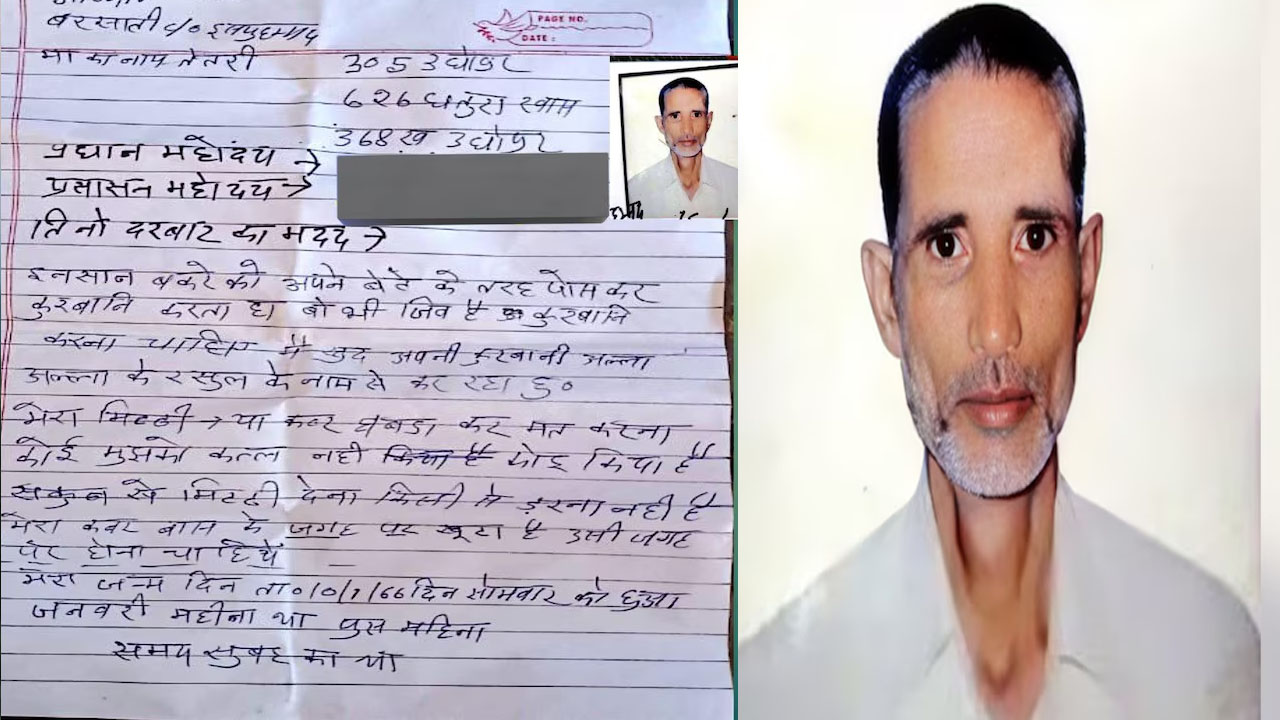 बरसाती c/o इनमुहम्मद
PAGE NO.
DATE :
मा का नाम तेतरी
305 उधोपुर
626 धतुरा खास
368 ख. उधोपुर
प्रधान महोदय →
प्रसासन महोदय →
तिनो दरबार का मदद →
इनसान बकरे को अपने बेटे के तरह पोस कर
कुरबानि करता हा वो भी जिव है कुरबानि
करना चाहिए मै खुद अपनी कुरबानी अल्ला
अल्ला के रसुल के नाम से कर रहा हु०
मेरा मिटटी → या कबर घबडा कर मत करना
कोई मुझको कत्ल नही किया है
सकुन से मिटटी देना किसी से डरना नही है
मेरा कबर बास के जगह पर खूटा है उसी जगह
पर होना चाहिये
मेरा जन्म दिन ता० 10/1/66 दिन सोमवार को हुआ
जनवरी महीना था पुस महिना
समय सुबह का था